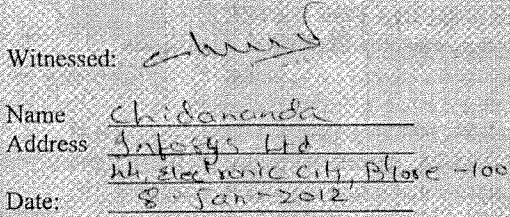 Witnessed:
Name Chidananda
Address Infosys Ltd
44, Electronic City, B'lore -100
Date: 8-Jan-2012